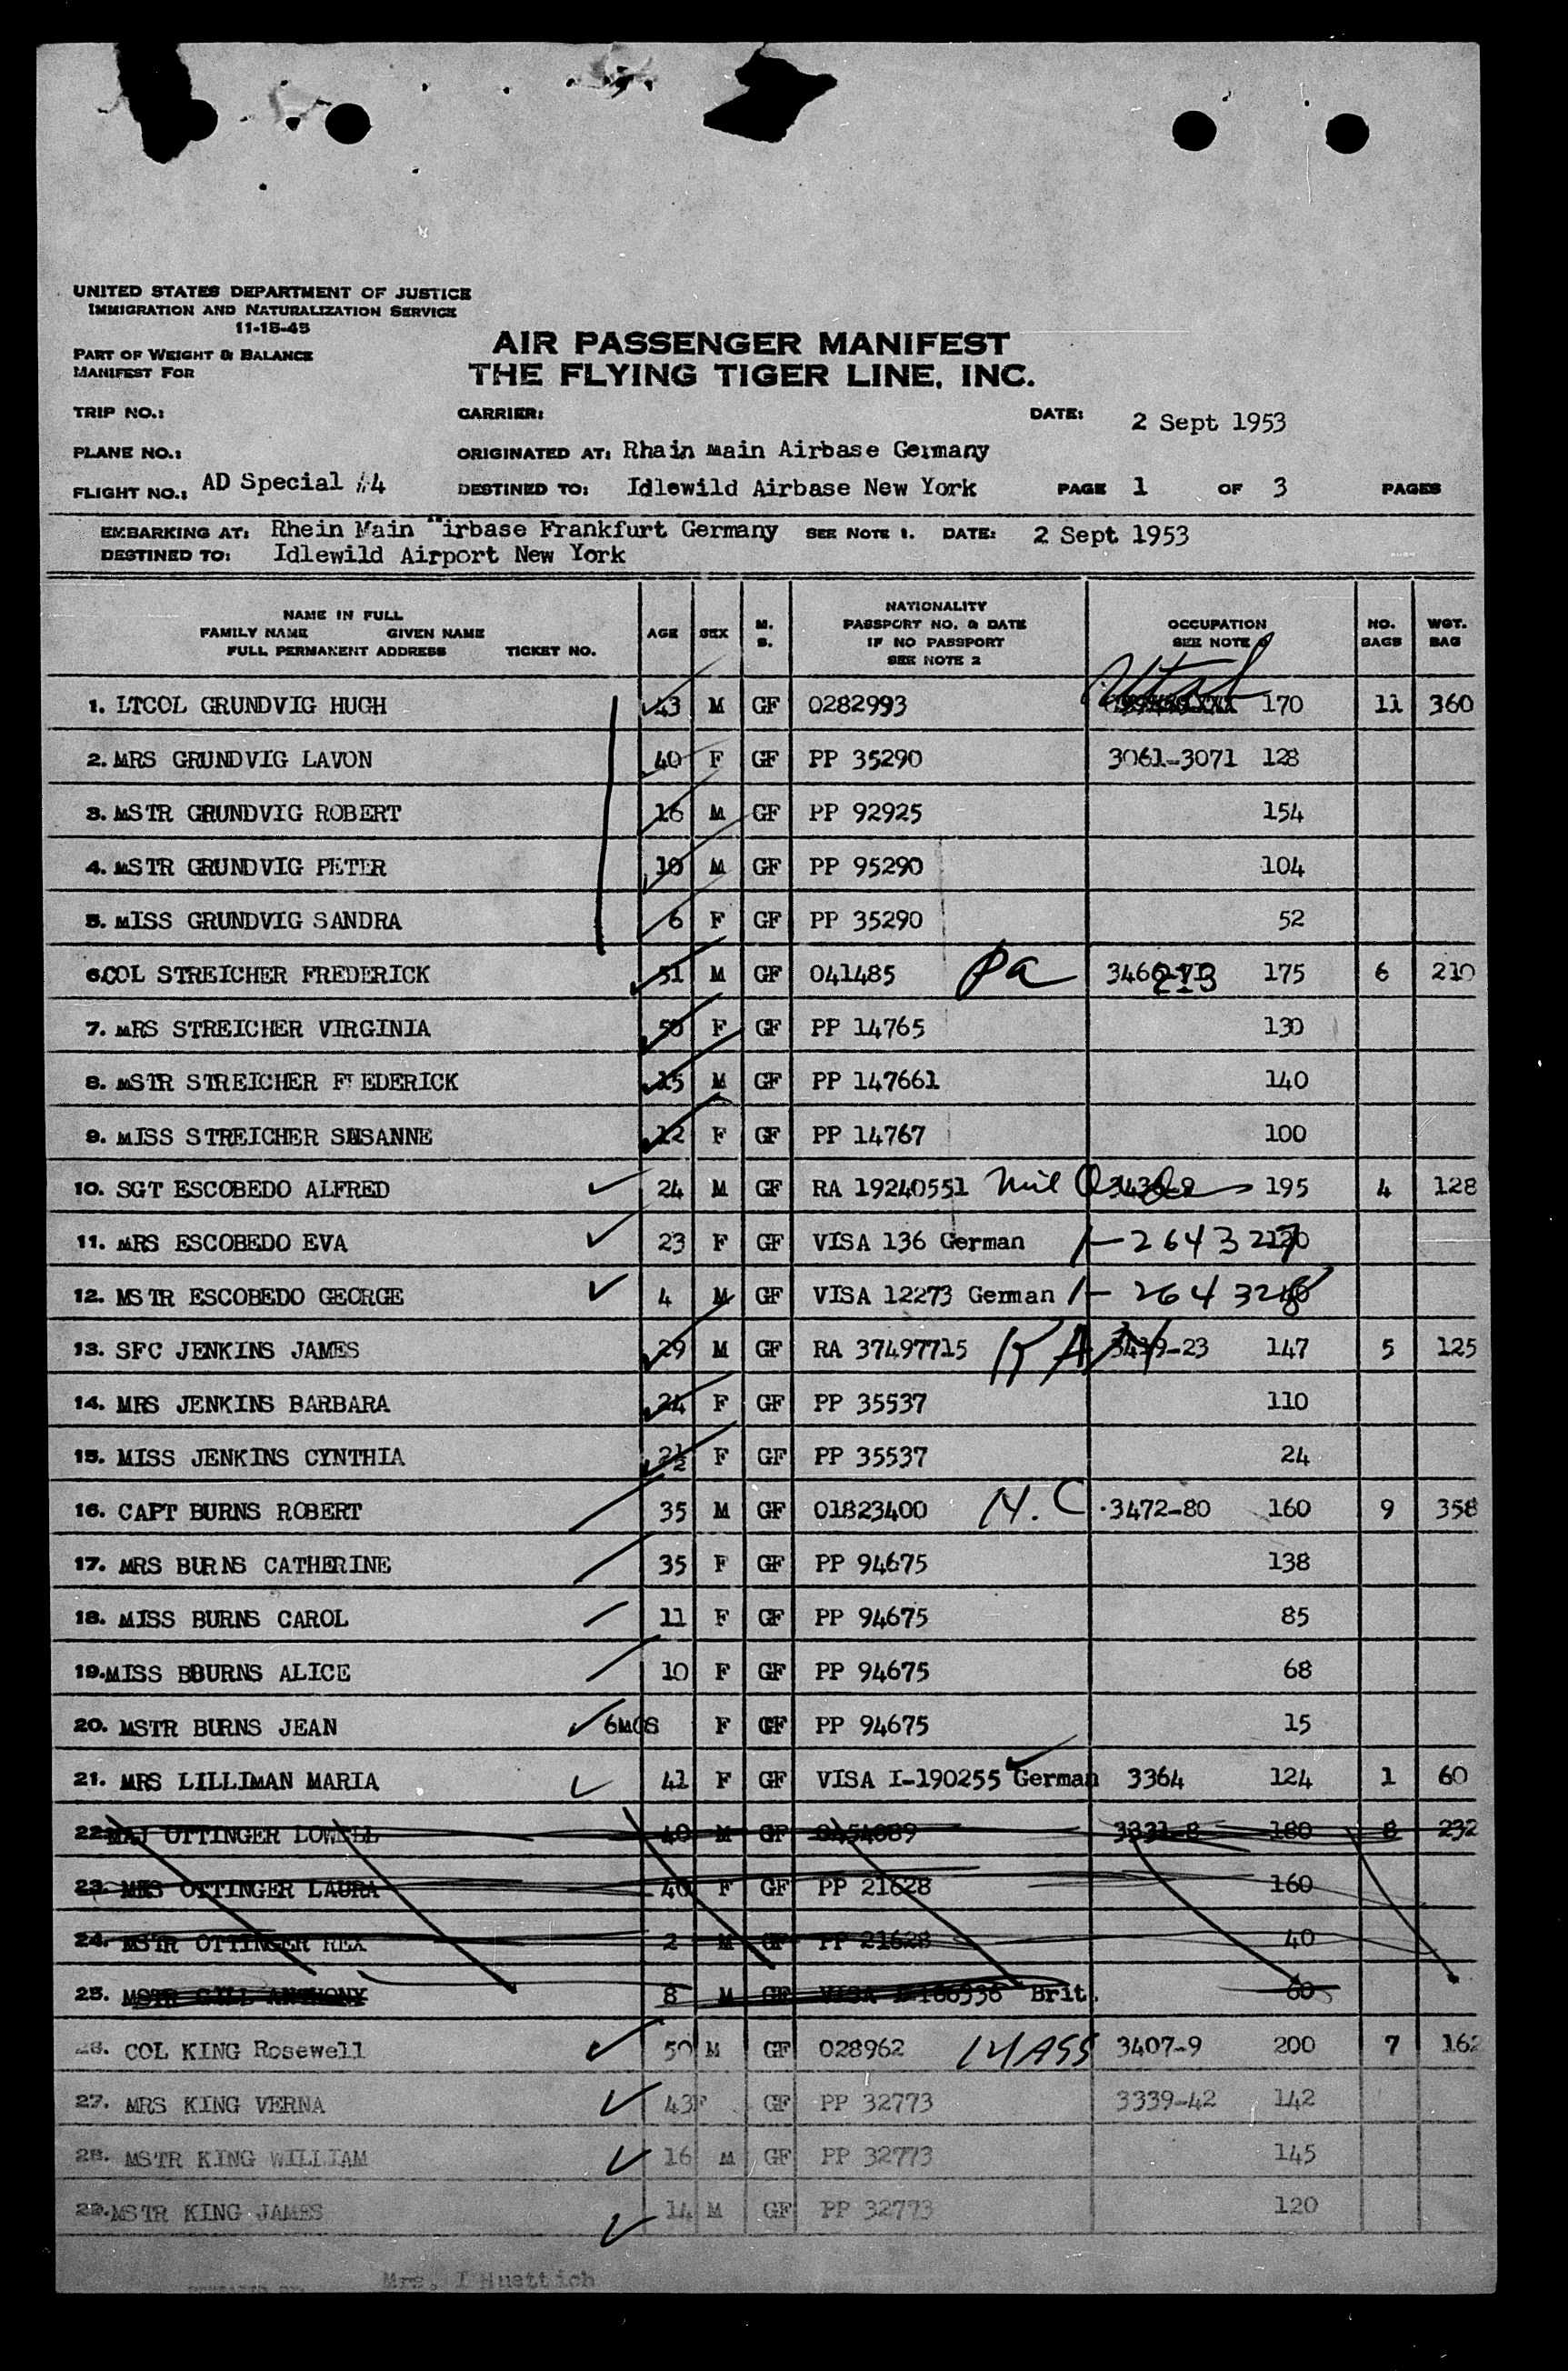 UNITED STATES DEPARTMENT OF JUSTICE
IMMIGRATION AND NATURALIZATION SERVICE
11-15-45
PART OF WEIGHT & BALANCE
MANIFEST FOR
AIR PASSENGER MANIFEST
THE FLYING TIGER LINE, INC.
TRIP NO.: CARRIER: DATE: 2 Sept 1953
PLANE NO.: ORIGINATED AT: Rhain Main Airbase Germany
FLIGHT NO.: AD Special #4 DESTINED TO: Idlewild Airbase New York PAGE 1 OF 3 PAGES
EMBARKING AT: Rhein Main "irbase Frankfurt Germany SEE NOTE 1. DATE: 2 Sept 1953
DESTINED TO: Idlewild Airport New York
NAME IN FULL
FAMILY NAME GIVEN NAME
FULL PERMANENT ADDRESS TICKET NO.
AGE SEX M. S.
NATIONALITY
PASSPORT NO. & DATE
IF NO PASSPORT
SEE NOTE 2
OCCUPATION
SEE NOTE
NO. BAGS
WGT. BAG
1. LTCOL GRUNDVIG HUGH 43 M GF 0282993 Utah 170 11 360
2. MRS GRUNDVIG LAVON 40 F GF PP 35290 3061-3071 128
3. MSTR GRUNDVIG ROBERT 16 M GF PP 92925 154
4. MSTR GRUNDVIG PETER 10 M GF PP 95290 104
5. MISS GRUNDVIG SANDRA 6 F GF PP 35290 52
6. COL STREICHER FREDERICK 51 M GF 041485 Pa 175 6 210
7. MRS STREICHER VIRGINIA 50 F GF PP 14765 130
8. MSTR STREICHER FREDERICK 15 M GF PP 147661 140
9. MISS STREICHER SUSANNE 12 F GF PP 14767 100
10. SGT ESCOBEDO ALFRED 24 M GF RA 19240551 Mil 195 4 128
11. MRS ESCOBEDO EVA 23 F GF VISA 136 German 1-264 3227 120
12. MSTR ESCOBEDO GEORGE 4 M GF VISA 12273 German 1-264 3228
13. SFC JENKINS JAMES 29 M GF RA 37497715 KAN 3419-23 147 5 125
14. MRS JENKINS BARBARA 24 F GF PP 35537 110
15. MISS JENKINS CYNTHIA 2½ F GF PP 35537 24
16. CAPT BURNS ROBERT 35 M GF 01823400 N.C 3472-80 160 9 358
17. MRS BURNS CATHERINE 35 F GF PP 94675 138
18. MISS BURNS CAROL 11 F GF PP 94675 85
19. MISS BBURNS ALICE 10 F GF PP 94675 68
20. MSTR BURNS JEAN 6MOS F GF PP 94675 15
21. MRS LILLIMAN MARIA 41 F GF VISA I-190255 German 3364 124 1 60
22. MAJ OTTINGER LOWELL 40 M GF 3331-8 180 8 232
23. MRS OTTINGER LAURA 40 F GF PP 21628 160
24. MSTR OTTINGER REX 2 M GF PP 21628 40
25. MSTR GILL ANTHONY 8 M GF VISA Brit. 60
26. COL KING Rosewell 50 M GF 028962 MASS 3407-9 200 7 162
27. MRS KING VERNA 43 F GF PP 32773 3339-42 142
28. MSTR KING WILLIAM 16 M GF PP 32773 145
29. MSTR KING JAMES 14 M GF PP 32773 120
Mrs. I Huettich